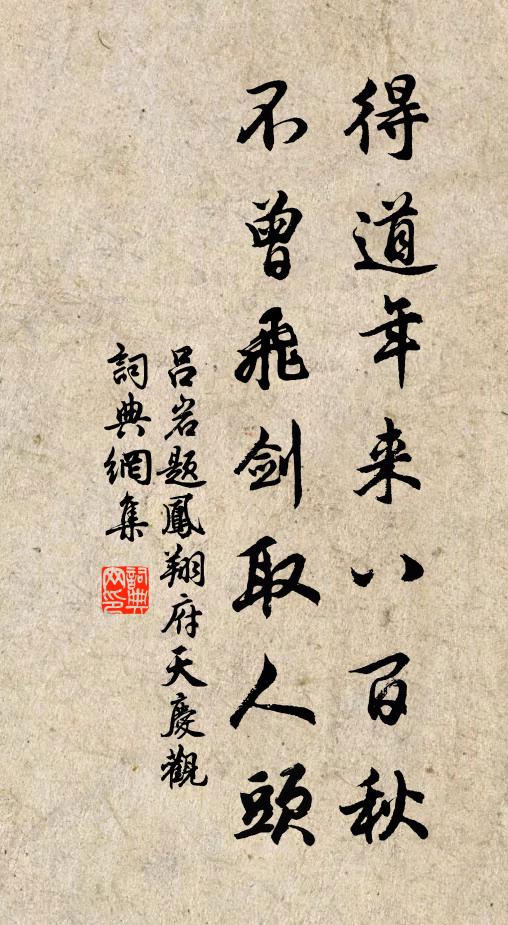 得道年来八百秋
不曾飛剑取人頭
吕岩题鳳翔府天慶觀
詞典網集
詞典网印